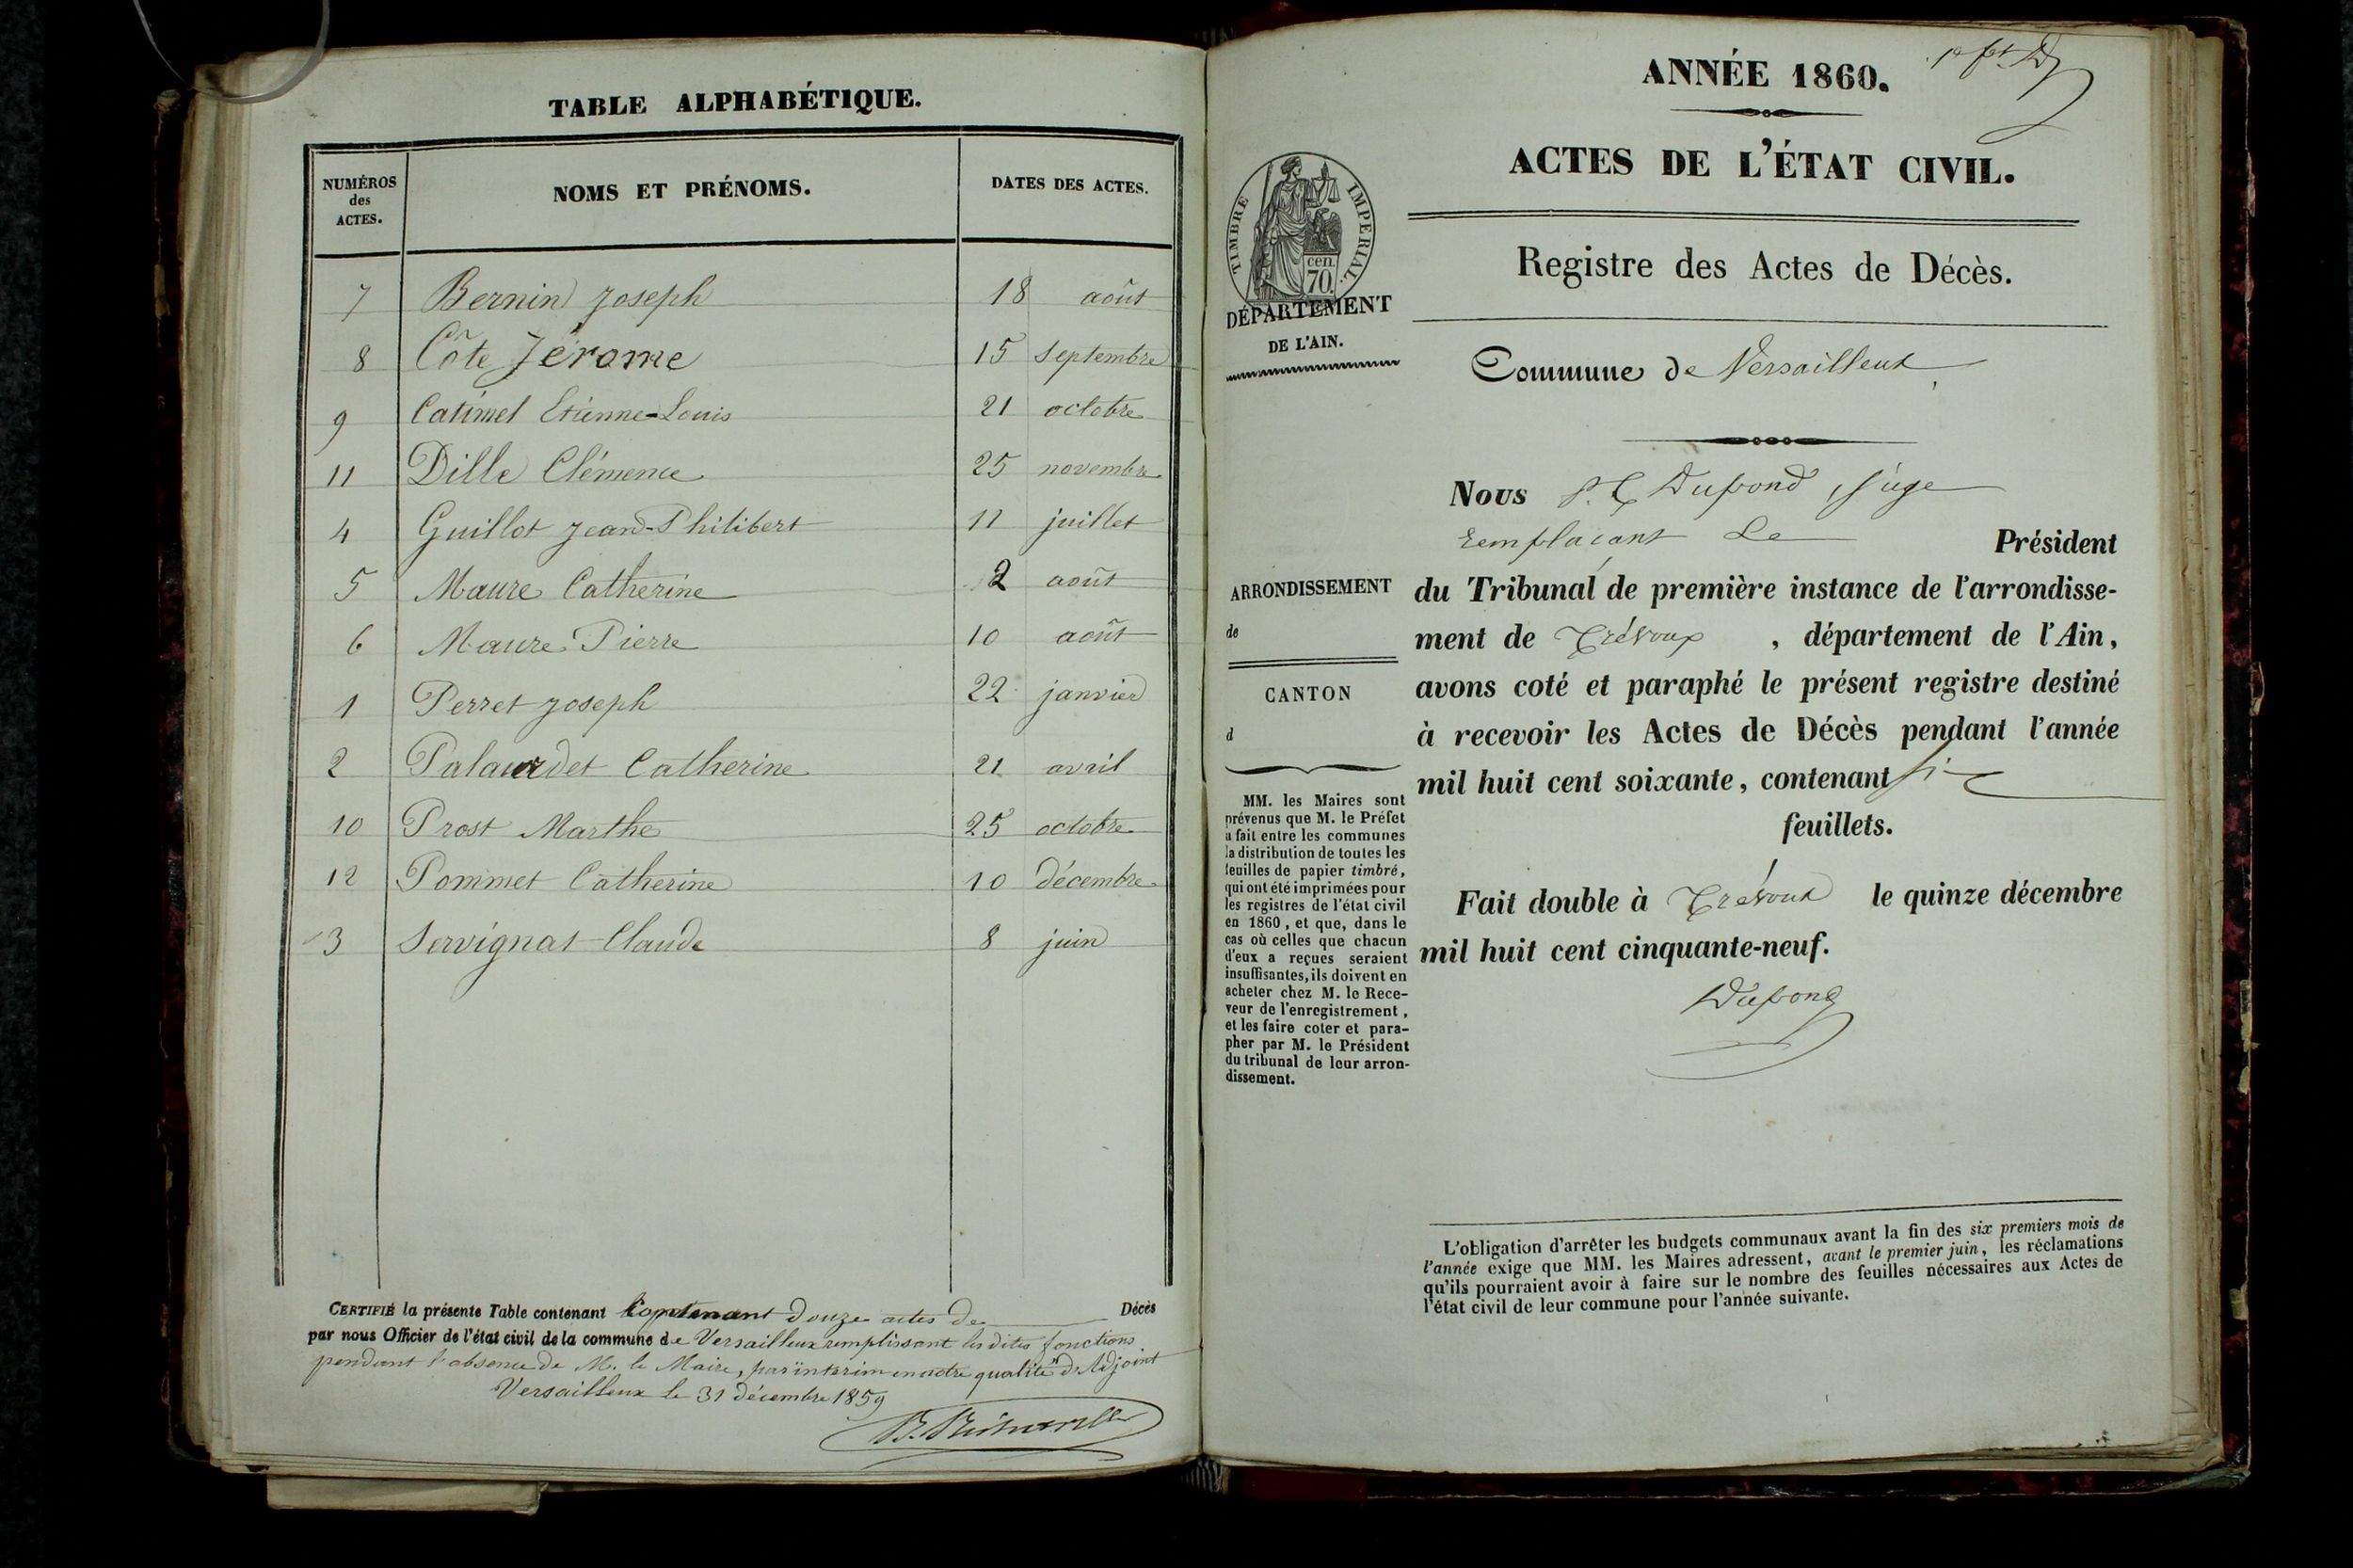 TABLE ALPHABÉTIQUE.
NUMÉROS
des
ACTES.
NOMS ET PRÉNOMS.
DATES DES ACTES.
7 Bernin Joseph 18 août
8 Côte Jérome 15 septembre
9 Catimel Etienne-Louis 21 octobre
11 Dille Clémence 25 novembre
4 Guillot Jean-Philibert 11 juillet
5 Maure Catherine 2 août
6 Maure Pierre 10 août
1 Perret Joseph 22 janvier
2 Palaurdet Catherine 21 avril
10 Prost Marthe 25 octobre
12 Pommet Catherine 10 décembre
3 Servignat Claude 8 juin
CERTIFIÉ la présente Table contenant Contenant Douze actes de Décès
par nous Officier de l'état civil de la commune de Versailleux remplissant les dites fonctions
pendant l'absence de M. le Maire, par interim en notre qualité d'Adjoint
Versailleux le 31 décembre 1859
ANNÉE 1860.
ACTES DE L'ÉTAT CIVIL.
Registre des Actes de Décès.
TIMBRE IMPERIAL
cen.
70.
DÉPARTEMENT
DE L'AIN.
Commune de Versailleux
Nous Dupond, Juge
remplaçant Le Président
du Tribunal de première instance de l'arrondisse-
ment de Trévoux, département de l'Ain,
avons coté et paraphé le présent registre destiné
à recevoir les Actes de Décès pendant l'année
mil huit cent soixante, contenant six
feuillets.
Fait double à Trévoux le quinze décembre
mil huit cent cinquante-neuf.
Dupond
ARRONDISSEMENT
de
CANTON
d
MM. les Maires sont
prévenus que M. le Préfet
a fait entre les communes
la distribution de toutes les
feuilles de papier timbré,
qui ont été imprimées pour
les registres de l'état civil
en 1860, et que, dans le
cas où celles que chacun
d'eux a reçues seraient
insuffisantes, ils doivent en
acheter chez M. le Rece-
veur de l'enregistrement,
et les faire coter et para-
pher par M. le Président
du tribunal de leur arron-
dissement.
L'obligation d'arrêter les budgets communaux avant la fin des six premiers mois de
l'année exige que MM. les Maires adressent, avant le premier juin, les réclamations
qu'ils pourraient avoir à faire sur le nombre des feuilles nécessaires aux Actes de
l'état civil de leur commune pour l'année suivante.